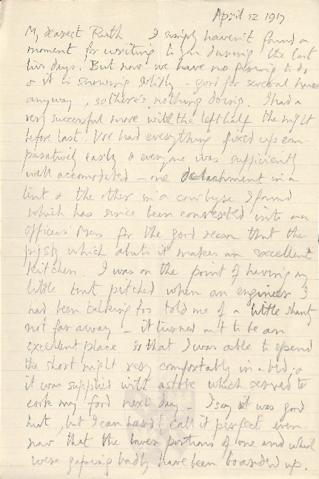 April 12 1917
My dearest Ruth I simply haven't found a
moment for writing to you during the last
two days. But now we have no firing to do
& it is snowing - good for several hours
anyway, so there's nothing doing. I had a
very successful move with the left half the night
before last. We had everything fixed up com-
paratively easily & everyone was sufficiently
well accomodated - one detachment in a
tent & the other in a I found
which has since been converted into an
officers mess for the good reason that the
which abuts it makes an excellent
kitchen. I was on the point of having my
little tent pitched when an engineer I
had been talking to told me of a little
not far away - it turned out to be an
excellent place so that I was able to spend
the short night very comfortably in a bed, &
it was supplied with a stove which served to
cook my food next day. I say it was good
but, but I can hardly call it perfect even
now that the lower portions of one end which
were gaping badly have been boarded up.